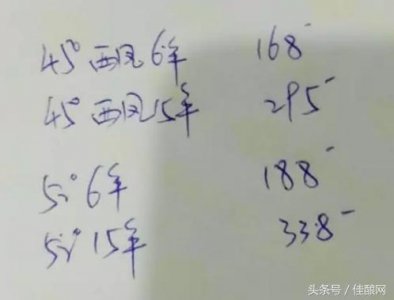 45° 西凤 6年 168-
45° 西凤 15年 295-
52° 6年 188-
52° 15年 338-
头条号 / 佳酿网